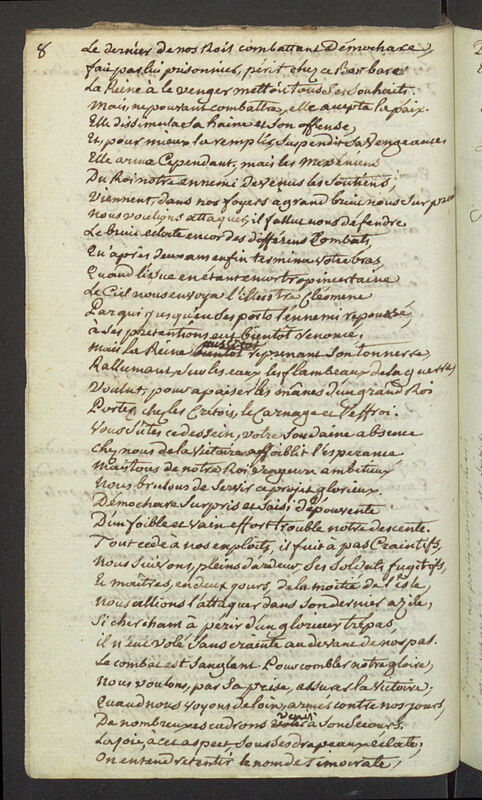 8
Le dernier de nos Rois combattant Démochare,
fait par lui prisonnier, périt chez ce Barbare
La Reine à le venger mettoit tous ses souhaits.
Mais, ne pouvant combattre, elle accepta la paix.
Elle dissimula sa haine et son offense,
Et, pour mieux la remplir, suspendit sa vengeance
Elle arma Cependant, mais les Messéniens
Du Roi notre ennemi devenus les soutiens,
Viennent, dans nos foyers à grand bruit nous surprendre
Nous voulions attaquer, il fallut nous défendre.
Le bruit éclate encor des différens Combats,
Qu'après deux ans enfin termina votre bras,
Quand l'issue en étant encor trop incertaine
Le Ciel nous envoya l'illustre Cléomene
Par qui jusqu'en ses ports l'ennemi repoussé,
à ses prétentions eut bientôt renoncé.
Mais la Reine bientôt aussitôt reprenant son tonnerre,
Rallumant sur les eaux les flambeaux de la guerre,
Voulut, pour apaiser les mânes d'un grand Roi
Porter chez les Crétois, le Carnage et l'effroi.
Vous sûtes ce dessein, votre soudaine absence
Chez nous de la Victoire affoiblit l'espérance
Mais tous de notre Roi vengeurs ambitieux
Nous brulons de servir ce projet glorieux.
Démochare surpris et saisi d'épouvente
D'un foible et vain effort trouble notre descente.
Tout cède à nos exploits, il fuit à pas Craintifs,
Nous suivons, pleins d'ardeur ses soldats fugitifs,
Et maîtres, en deux jours, de la moitié de l'isle
Nous allions l'attaquer dans son dernier azile,
Si cherchant à périr d'un glorieux trépas
il n'eut volé sans crainte au devant de nos pas.
Le combat est sanglant. Pour combler notre gloire,
Nous voulons, par sa prise, assurer la Victoire;
Quand nous voyons de loin, armés contre nos jours,
De nombreux escadrons venir à son secours.
La joie, à cet aspect sous ses drapeaux éclate;
On entend retentir le nom de Timocrate;